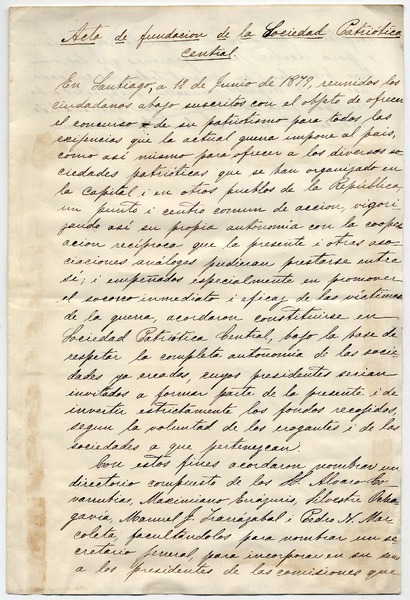 Acta de fundacion de la Sociedad Patriótica
Central.
En Santiago, a 12 de Junio de 1879, reunidos los
ciudadanos abajo suscritos con el objeto de ofrecer
el concurso de su patriotismo para todas las
exijencias que la actual guerra impone al pais,
como asi mismo para ofrecer a las diversas so-
ciedades patrióticas que se han organizado en
la capital i en otros pueblos de la República,
un punto i centro comun de accion, vigori-
zando asi su propia autonomia con la coope-
racion recíproca que la presente i otras aso-
ciaciones análogas pudieran prestarse entre
sí; i empeñados especialmente en promover
el socorro inmediato i eficaz de las víctimas
de la guerra, acordaron constituirse en
Sociedad Patriótica Central, bajo la base de
respetar la completa autonomia de las socie-
dades ya creadas, cuyos presidentes serian
invitados a formar parte de la presente i de
invertir estrictamente los fondos recojidos,
segun la voluntad de los erogantes i de las
sociedades a que pertenezcan.
Con estos fines acordaron nombrar un
directorio compuesto de los Alvaro Co-
varrubias, Maximiano Errázuriz, Silvestre Ocha-
gavia, Manuel J. Irarrázabal i Pedro N. Mar-
coleta, facultándolos para nombrar un se-
cretario jeneral, para incorporar en su seno
a los presidentes de las comisiones que